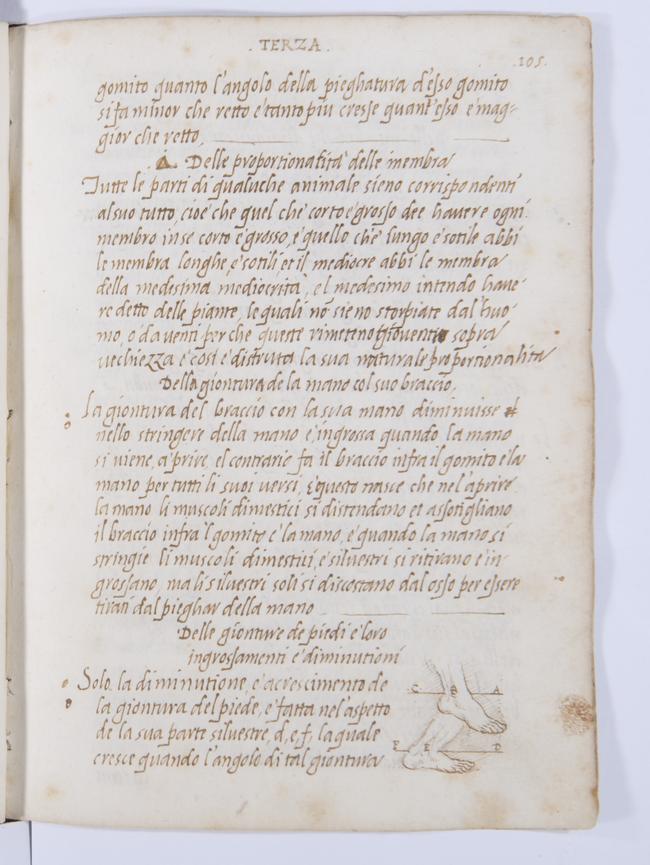 . TERZA .
.105.
gomito quanto l'angolo della pieghatura d'esso gomito
si fa minor che retto e tanto piu cresse quant'esso e mag=
gior che retto.
Delle proportionalita delle membra
Tutte le parti di qualuche animale sieno corrispondenti
al suo tutto, cioe che quel che corto e grosso dee havere ogni
membro in se corto e grosso, e quello che lungo e sotile abbi
le membra longhe, e sotili et il mediocre abbi le membra
della medesima mediocrita, el medesimo intendo have=
re detto delle piante, le quali nō sieno storpiate dal huo=
mo, o da venti per che queste rimeteno gioventu sopra
vechiezza e cosi e distrutta la sua naturale proportionalita
Della giontura de la mano col suo braccio.
La giontura del braccio con la sua mano diminuisse
nello stringere della mano e ingrossa quando la mano
si viene, a prire, el contrario fa il braccio infra il gomito e la
mano per tutti li suoi versi, e questo nasce che nel'aprire
la mano li muscoli dimestici si distendano et assotigliano
il braccio infra 'l gomito e la mano, e quando la mano si
stringie li muscoli dimestici, e silvestri si ritirano e in=
grossano, ma li silvestri soli si discostano dal osso per essere
tirati dal pieghar della mano
Delle gionture de piedi e loro
ingrossamenti e diminutioni
Solo la diminutione, e acrescimento de
la giontura del piede, e fatta nel'aspetto
de la sua parte silvestre, d, e, f, la quale
cresce quando l'angolo di tal giontura
C B A
F E D